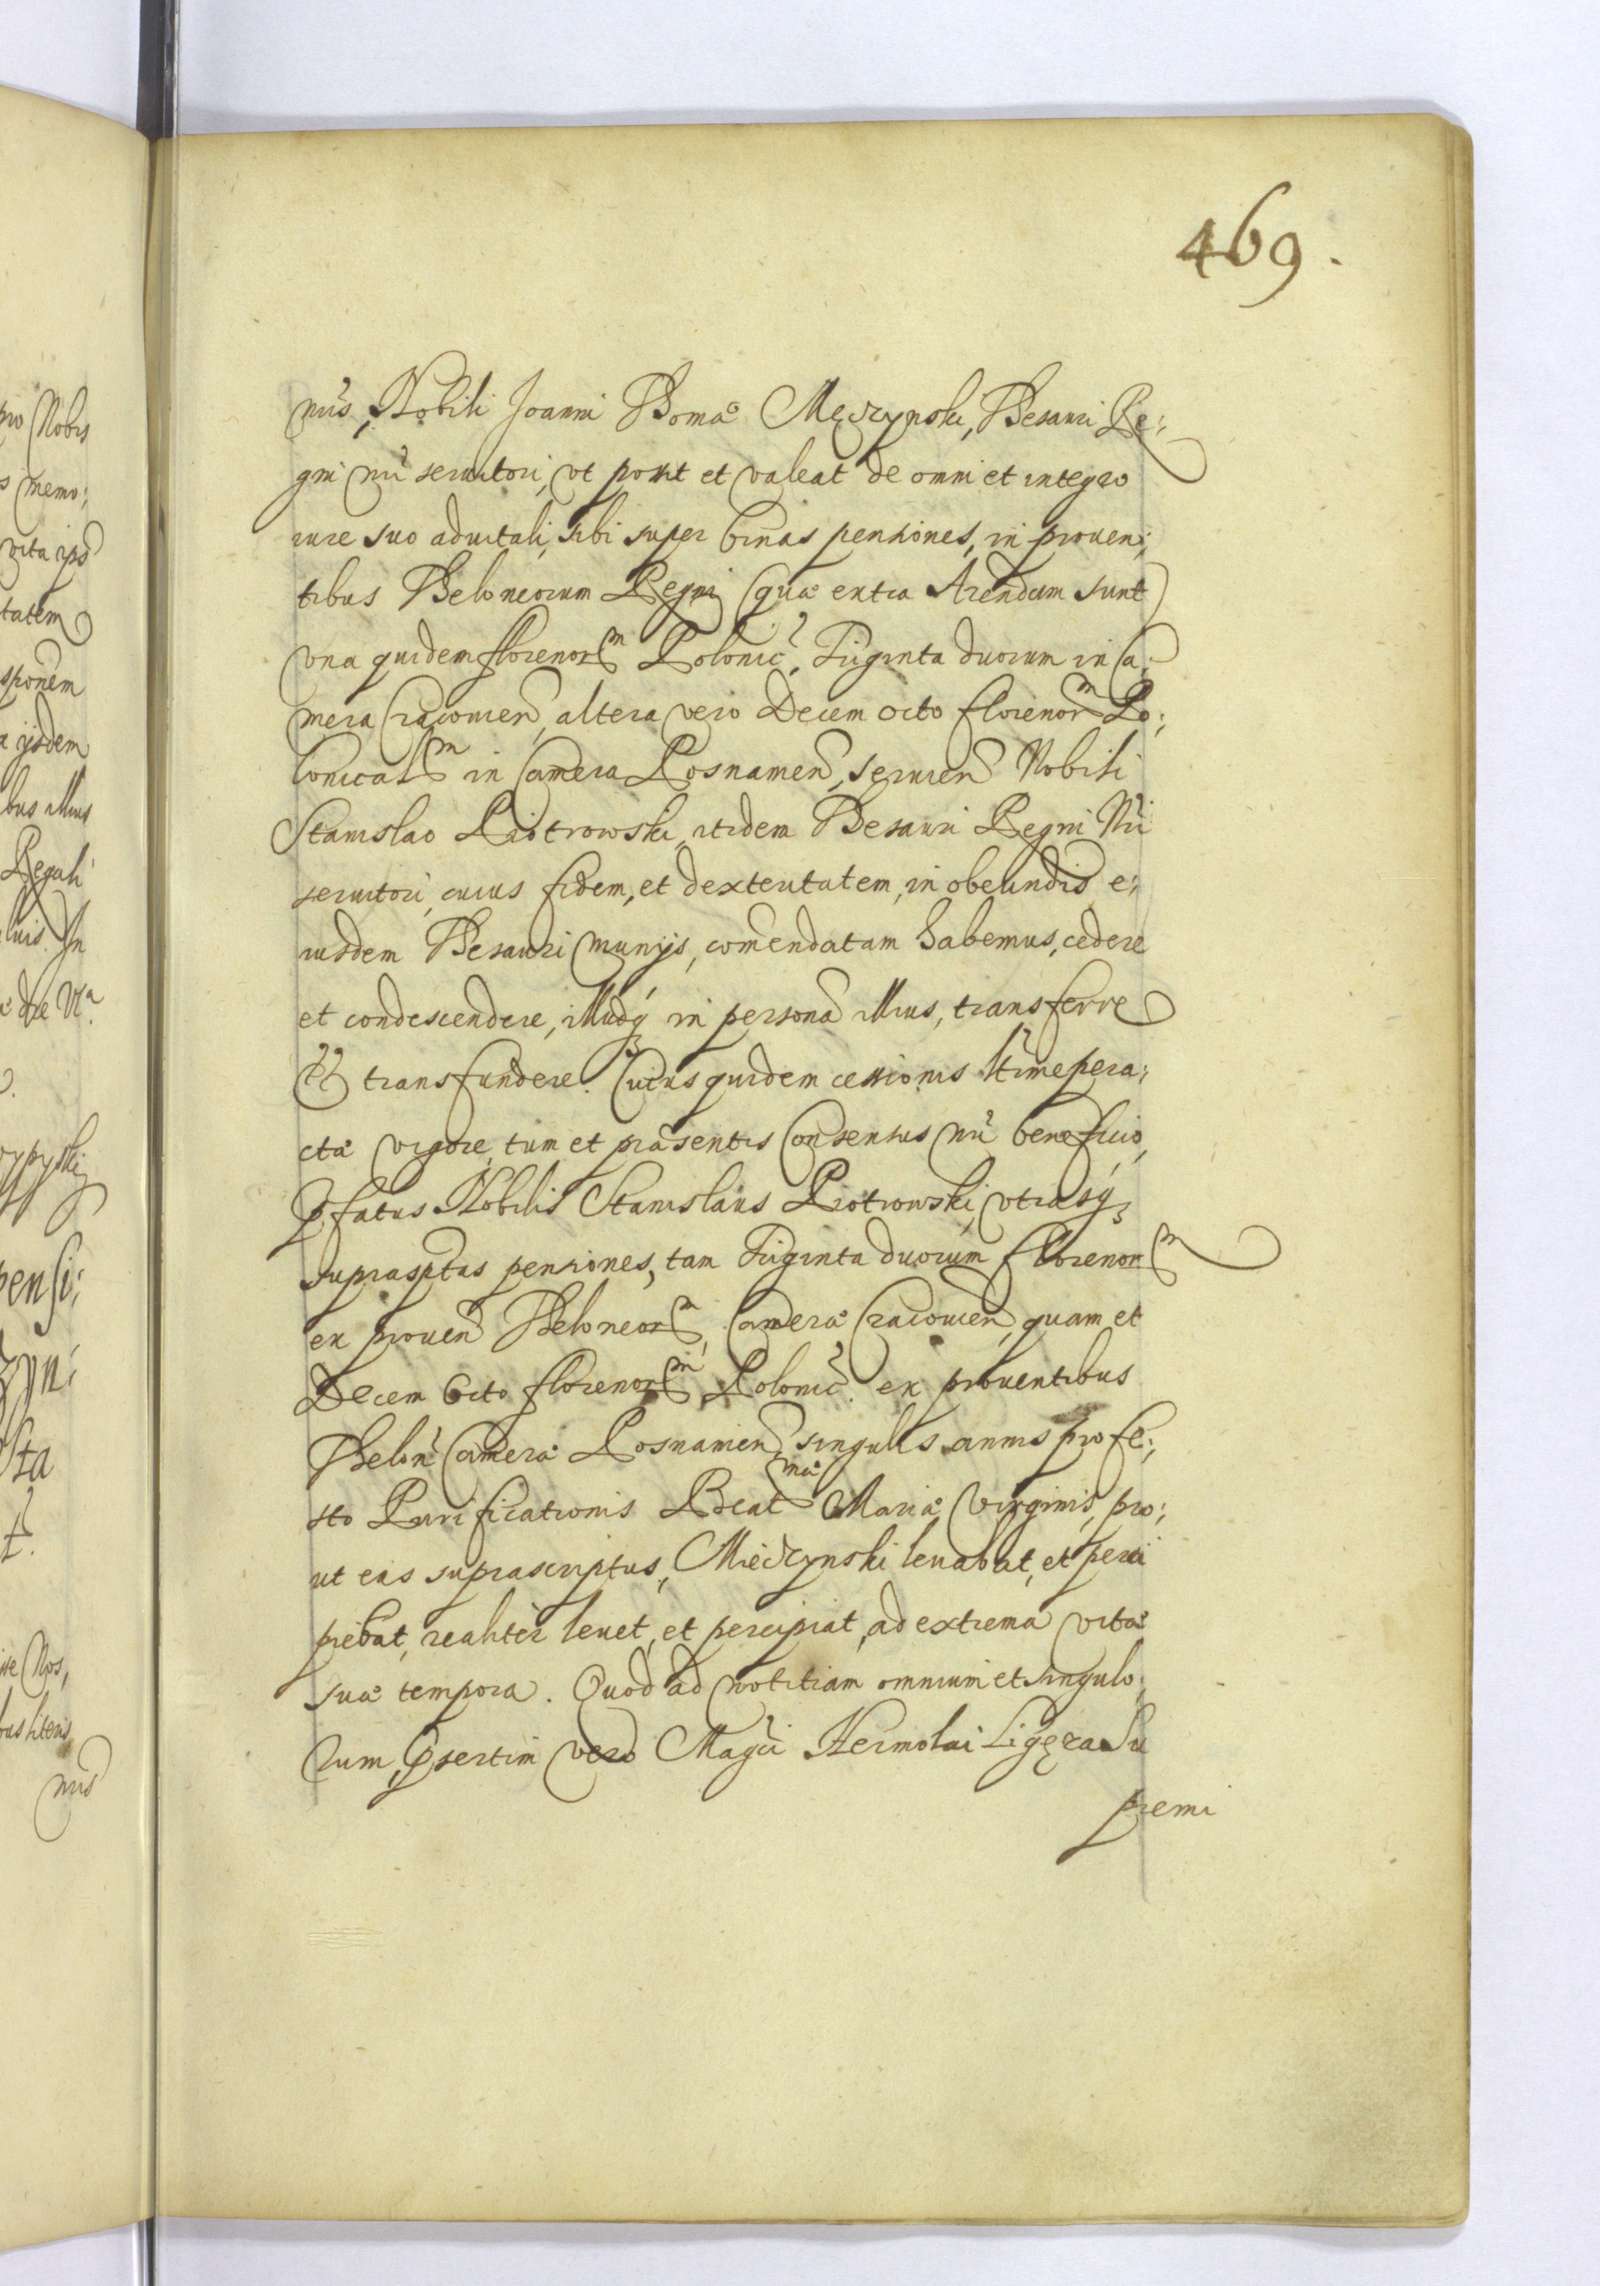 469.
nus, Nobili Joanni Thomæ Męczynski, Thesauri Re:
gni nri seruitori, vt possit et valeat de omni et integro
iure suo aduitali, sibi super binas pensiones, in prouen:
tibus Theloneorum Regni (quæ extra Arendam sunt)
vna quidem florenorum Polonic. Triginta duorum in Ca:
mera Cracouien, altera vero Decem octo florenorum Po:
lonicalium in Camera Posnanien, seruien Nobili
Stanislao Piotrowski, itidem Thesauri Regni Nri
seruitori, cuius fidem, et dexteritatem, in obeundis e:
iusdem Thesauri munijs, comendatam habemus, cedere
et condescendere, illudq in persona illius, transferre
et transfundere. Cuius quidem cessionis ltime pera:
ctæ vigore, tum et præsentis Consensus nri beneficio,
pfatus Nobilis Stanislaus Piotrowski, vtrasq
suprasptas pensiones, tam Triginta duorum florenorum
ex prouen Theloneorum, Cameræ Cracouien, quam et
Decem Octo florenorum Polonic. ex prouentibus
Thelon Cameræ Posnanien, singulis annis pro fe:
sto Purificationis Beatmæ Mariæ Virginis, pro:
ut eas suprascriptus, Mięczynski leuabat, et perci
piebat, realiter leuet, et percipiat, ad extrema vitæ
suæ tempora. Quod ad notitiam omnium et singulo:
rum, psertim vero Magci Hermolai Ligęza Su
premi
pro Nobis
s memo:
vita ips
tatem
sponem
a ijsdem
bus illius
Regali
luis. In
æ die Vta.
ypyski
pensi:
zyn:
sta
t.
ue Nos,
bus literis
nus